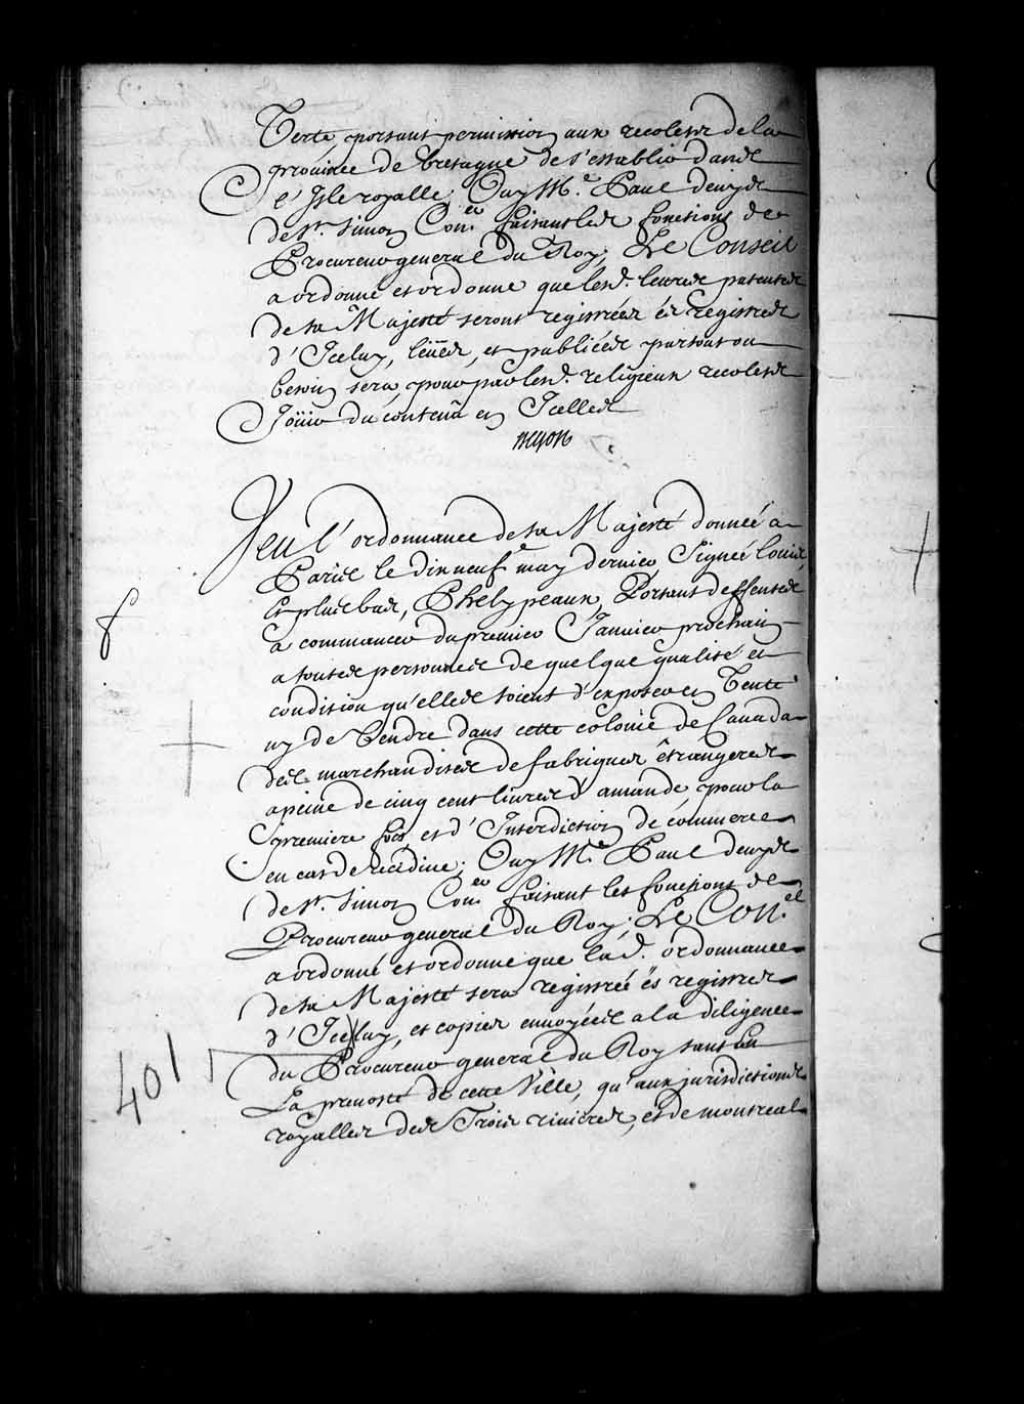 Verte, portant permission aux recolets de la
province de bretagne de s'establir dans
l'Isle royalle, Ouy Me. Paul denys
de St. simon Coner. faisant les fonctions de
Procureur general du Roy; Le Conseil
a ordonné et ordonne que lesd. lettres patentes
de sa Majesté seront registrées és registres
d'Iceluy, leües, et publiées partout ou
besoin sera, pour par lesd. religieux recolets
Joüir du contenu en Icelles
Begon
Veu l'ordonnance de sa Majesté donnée a
Paris le dix neufe. may dernier, Signée Louis,
Et plus bas, Phelypeaux, Portant deffenses
a commancer du premier Janvier prochain
a toutes personnes de quelque qualité et
condition qu'elles soient d'exposer en Vente
ny de Vendre dans cette colonie de Canada
des marchandises de fabriques étrangeres
a peine de cinq cent livres d'amande pour la
premiere fois, et d'Interdiction de commerce
en cas de recidive; Ouy Me. Paul denys
de St. simon Coner. faisant les fonctions de
Procureur general du Roy; Le Conel.
a ordonné et ordonne que lad. ordonnance
de sa Majesté sera registrée és registres
d'Iceluy, et copies envoyées a la diligence
du Procureur general du Roy tant en
La prevosté de cette Ville, qu'aux jurisdictions
royalles des Trois rivieres, et de montreal
401